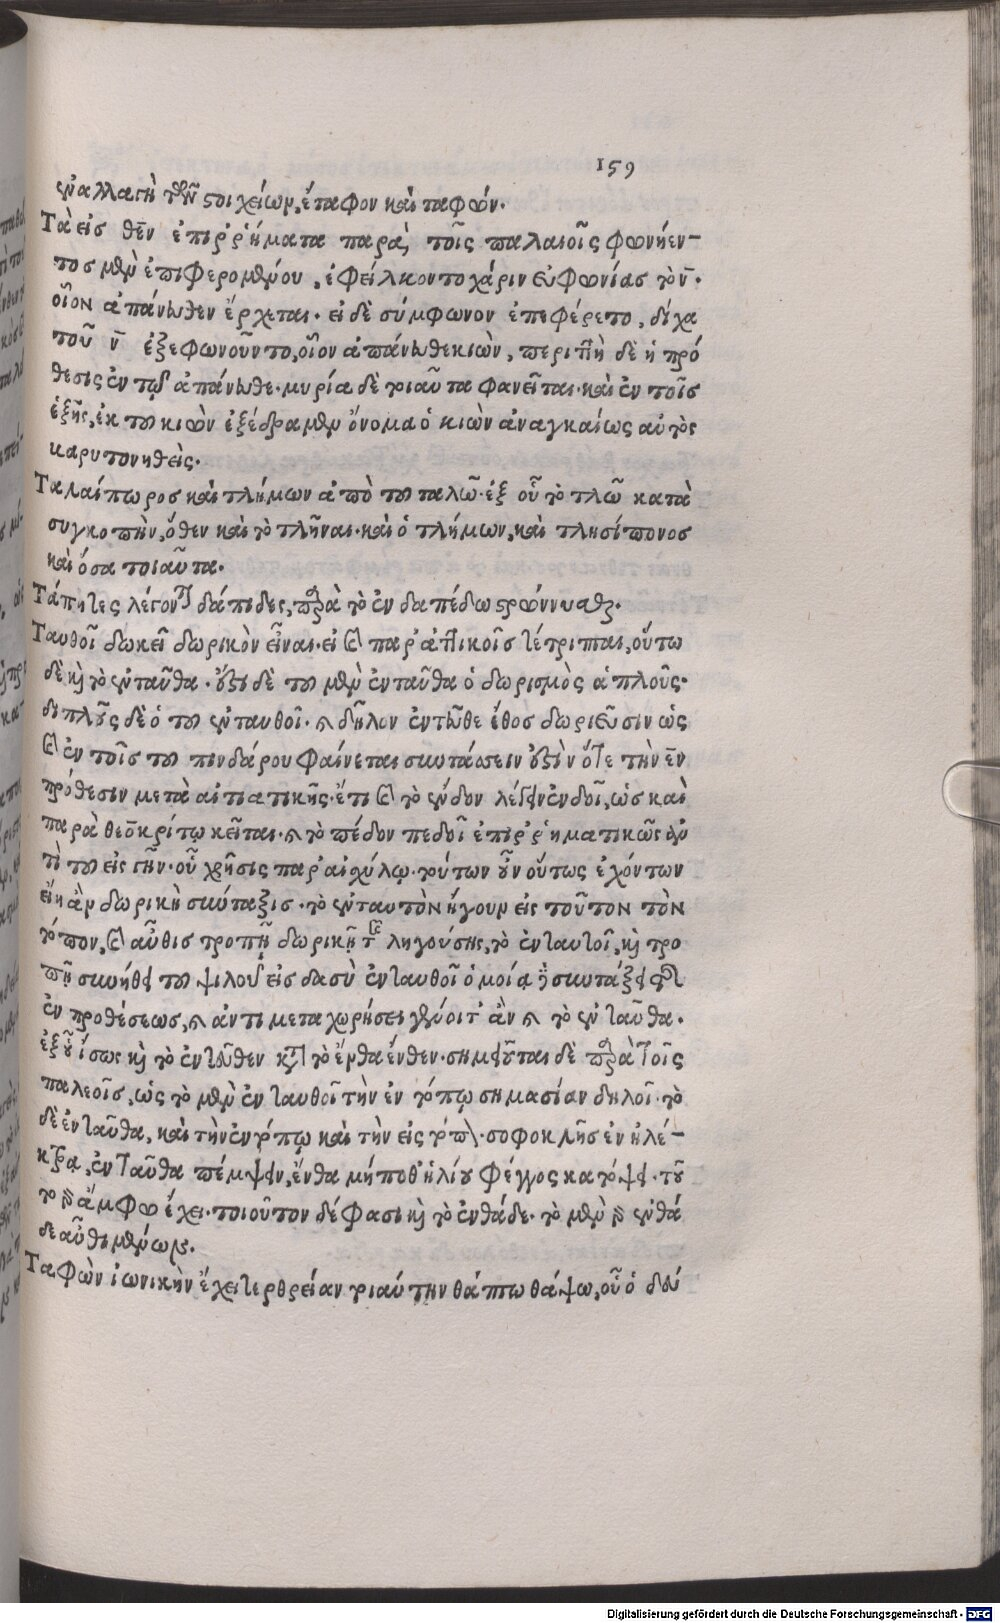 159
ἐναλλαγὴ τῶν στοιχείων, ἔταφον καὶ ταφών.
Τὰ εἰς θεν ἐπιῤῥήματα παρὰ τοῖς παλαιοῖς φωνήεν-
τος μὲν ἐπιφερομένου, ἐφείλκοντο χάριν εὐφωνίας τὸ ν̄.
οἷον ἀπάνωθεν ἔρχεται. εἰ δὲ σύμφωνον ἐπεφέρετο, δίχα
τοῦ ν̄ ἐξεφωνοῦντο, οἷον ἀπάνωθε κιών, περιττὴ δὲ ἡ πρό
θεσις ἐν τῷ ἀπάνωθε. μυρία δὲ τοιαῦτα φανεῖται. καὶ ἐν τοῖς
ἑξῆς, ἐκ τοῦ κιὼν ἐξέδραμεν ὄνομα ὁ κιὼν ἀναγκαίως αὐτὸς
βαρυτονηθείς.
Ταλαίπωρος καὶ τλήμων ἀπὸ τοῦ ταλῶ. ἐξ οὗ τὸ τλῶ κατὰ
συγκοπὴν, ὅθεν καὶ τὸ τλῆναι. καὶ ὁ τλήμων, καὶ τλησίπονος
καὶ ὅσα τοιαῦτα.
Τάπητες λέγονται δάπιδες, παρὰ τὸ ἐν δαπέδω στρώννυσθαι.
Ταυθοῖ δωκεῖ δωρικὸν εἶναι. εἰ καὶ παρ' ἀττικοῖς τέτριπται, οὕτω
δὲ καὶ τὸ ἐνταῦθα. ἔστι δὲ τοῦ μὲν ἐνταῦθα ὁ δωρισμὸς ἁπλοῦς.
διπλοῦς δὲ ὁ τοῦ ἐνταυθοῖ. καὶ δῆλον ἐντεῦθεν ἔθος δωριεῦσιν ὡς
καὶ ἐν τοῖς τοῦ πινδάρου φαίνεται συντάσσειν ἔστιν ὅτε τὴν ἐν
πρόθεσιν μετὰ αἰτιατικῆς. ἔτι καὶ τὸ ἔνδον λέγειν ἐνδοῖ, ὡς καὶ
παρὰ θεοκρίτῳ κεῖται. καὶ τὸ πέδον πεδοῖ ἐπιῤῥηματικῶς ἀν
τὶ τοῦ εἰς γῆν. οὗ χρῆσις παρ' αἰχύλῳ. τούτων οὖν οὕτως ἐχόντων
εἴη ἂν δωρικὴ σύνταξις. τὸ ἐνταυτὸν ἤγουν εἰς τοῦτον τὸν
τόπον, καὶ αὖθις τροπῇ δωρικῇ τῆς ληγούσης, τὸ ἐνταυτοῖ, καὶ τρο
πῇ συνήθει τοῦ ψιλοῦ εἰς δασὺ ἐνταυθοῖ ὁμοίᾳ
ἐν προθέσεως, καὶ ἀντιμεταχωρήσει γένοιτ' ἂν καὶ τὸ ἐνταῦθα.
ἐξ οὗ ἴσως καὶ τὸ ἐντεῦθεν κατὰ τὸ ἔνθα ἔνθεν. σημειοῦται δὲ παρὰ τοῖς
παλεοῖς, ὡς τὸ μὲν ἐνταυθοῖ τὴν ἐν τόπῳ σημασίαν δηλοῖ. τὸ
δὲ ἐνταῦθα, καὶ τὴν ἐν τόπῳ καὶ τὴν εἰς τόπον. σοφοκλῆς ἐν ἠλέ-
κτρᾳ, ἐνταῦθα πέμψειν, ἔνθα μήποθ' ἡλίου φέγγος κατόψει. τοῦ
το γὰρ ἄμφω ἔχει. τοιοῦτον δέ φασι καὶ τὸ ἐνθάδε. τὸ μὲν γὰρ ἐνθά
δε αὖθι μένων.
Ταφὼν ἰωνικὴν ἔχει τερθρείαν τοιαύτην θάπτω θάψω, οὗ ὁ δεύ
Digitalisierung gefördert durch die Deutsche Forschungsgemeinschaft - DFG